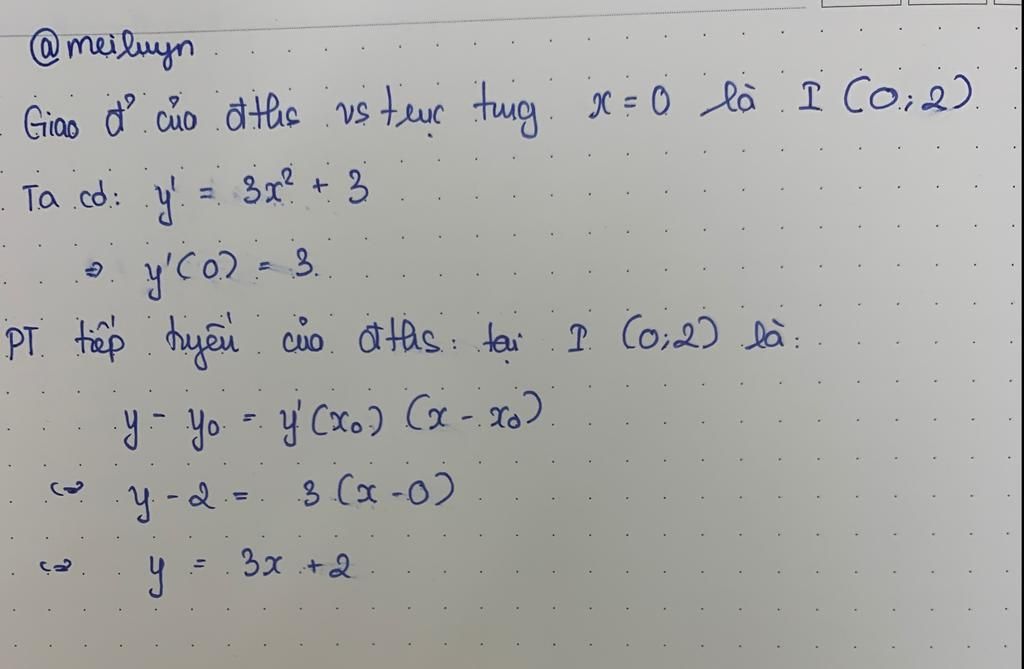 @meiluyn
Giao đ' của đths vs trục tung x = 0 là I (0;2)
Ta có: y' = 3x² + 3
⇒ y'(0) = 3
PT tiếp tuyến của đths tại I (0;2) là:
y - y₀ = y'(x₀) (x - x₀)
⇔ y - 2 = 3 (x - 0)
⇔ y = 3x + 2